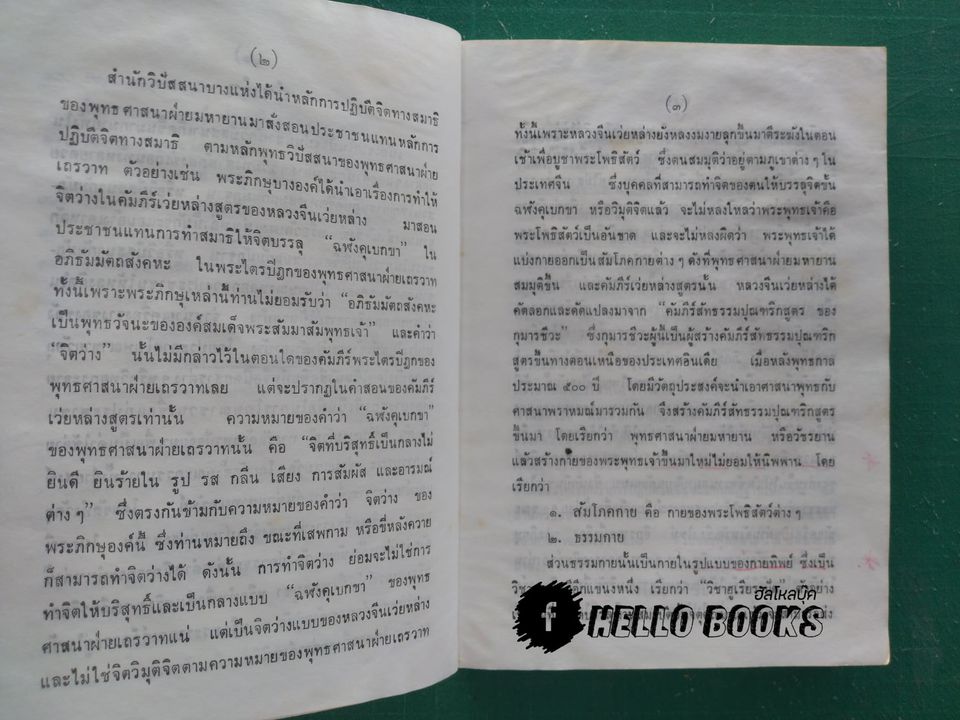 (๒)
สำนักวิปัสสนาบางแห่งได้นำหลักการปฏิบัติจิตทางสมาธิ
ของพุทธศาสนาฝ่ายมหายานมาสั่งสอนประชาชนแทนหลักการ
ปฏิบัติจิตทางสมาธิ ตามหลักพุทธวิปัสสนาของพุทธศาสนาฝ่าย
เถรวาท ตัวอย่างเช่น พระภิกษุบางองค์ได้นำเอาเรื่องการทำให้
จิตว่างในคัมภีร์เว่ยหล่างสูตรของหลวงจีนเว่ยหล่าง มาสอน
ประชาชนแทนการทำสมาธิให้จิตบรรลุ "ฉฬังคุเบกขา" ใน
อภิธัมมัตถสังคหะ ในพระไตรปิฎกของพุทธศาสนาฝ่ายเถรวาท
ทั้งนี้เพราะพระภิกษุเหล่านี้ท่านไม่ยอมรับว่า "อภิธัมมัตถสังคหะ
เป็นพุทธวัจนะขององค์สมเด็จพระสัมมาสัมพุทธเจ้า" และคำว่า
"จิตว่าง" นั้นไม่มีกล่าวไว้ในตอนใดของคัมภีร์พระไตรปิฎกของ
พุทธศาสนาฝ่ายเถรวาทเลย แต่จะปรากฏในคำสอนของคัมภีร์
เว่ยหล่างสูตรเท่านั้น ความหมายของคำว่า "ฉฬังคุเบกขา"
ของพุทธศาสนาฝ่ายเถรวาทนั้น คือ "จิตที่บริสุทธิ์เป็นกลางไม่
ยินดี ยินร้ายใน รูป รส กลิ่น เสียง การสัมผัส และอารมณ์
ต่าง ๆ" ซึ่งตรงกันข้ามกับความหมายของคำว่า จิตว่าง ของ
พระภิกษุองค์นี้ ซึ่งท่านหมายถึง ขณะที่เสพกาม หรือขี่หลังควาย
ก็สามารถทำจิตว่างได้ ดังนั้น การทำจิตว่าง ย่อมจะไม่ใช่การ
ทำจิตให้บริสุทธิ์และเป็นกลางแบบ "ฉฬังคุเบกขา" ของพุทธ
ศาสนาฝ่ายเถรวาทแน่ แต่เป็นจิตว่างแบบของหลวงจีนเว่ยหล่าง
และไม่ใช่จิตวิมุติจิตตามความหมายของพุทธศาสนาฝ่ายเถรวาท
(๓)
ทั้งนี้เพราะหลวงจีนเว่ยหล่างยังหลงงมงายลุกขึ้นมาตีระฆังในตอน
เช้าเพื่อบูชาพระโพธิสัตว์ ซึ่งตนสมมุติว่าอยู่ตามภูเขาต่าง ๆ ใน
ประเทศจีน ซึ่งบุคคลที่สามารถทำจิตของตนให้บรรลุจิตขั้น
ฉฬังคุเบกขา หรือวิมุติจิตแล้ว จะไม่หลงใหลว่าพระพุทธเจ้าคือ
พระโพธิสัตว์เป็นอันขาด และจะไม่หลงผิดว่า พระพุทธเจ้าได้
แบ่งกายออกเป็นสัมโภคกายต่าง ๆ ดังที่พุทธศาสนาฝ่ายมหายาน
สมมุติขึ้น และคัมภีร์เว่ยหล่างสูตรนั้น หลวงจีนเว่ยหล่างได้
คัดลอกและดัดแปลงมาจาก "คัมภีร์สัทธรรมปุณฑริกสูตร ของ
กุมารชีวะ" ซึ่งกุมารชีวะผู้นี้เป็นผู้สร้างคัมภีร์สัทธรรมปุณฑริก
สูตรขึ้นทางตอนเหนือของประเทศอินเดีย เมื่อหลังพุทธกาล
ประมาณ ๕๐๐ ปี โดยมีวัตถุประสงค์จะนำเอาศาสนาพุทธกับ
ศาสนาพราหมณ์มารวมกัน จึงสร้างคัมภีร์สัทธรรมปุณฑริกสูตร
ขึ้นมา โดยเรียกว่า พุทธศาสนาฝ่ายมหายาน หรือวัชรยาน
แล้วสร้างกายของพระพุทธเจ้าขึ้นมาใหม่ไม่ยอมให้นิพพาน โดย
เรียกว่า
๑. สัมโภคกาย คือ กายของพระโพธิสัตว์ต่าง ๆ
๒. ธรรมกาย
ส่วนธรรมกายนั้นเป็นกายในรูปแบบของกายทิพย์ ซึ่งเป็น
อีกแขนงหนึ่ง เรียกว่า
ฮัลโหลบุ๊ค
HELLO BOOKS